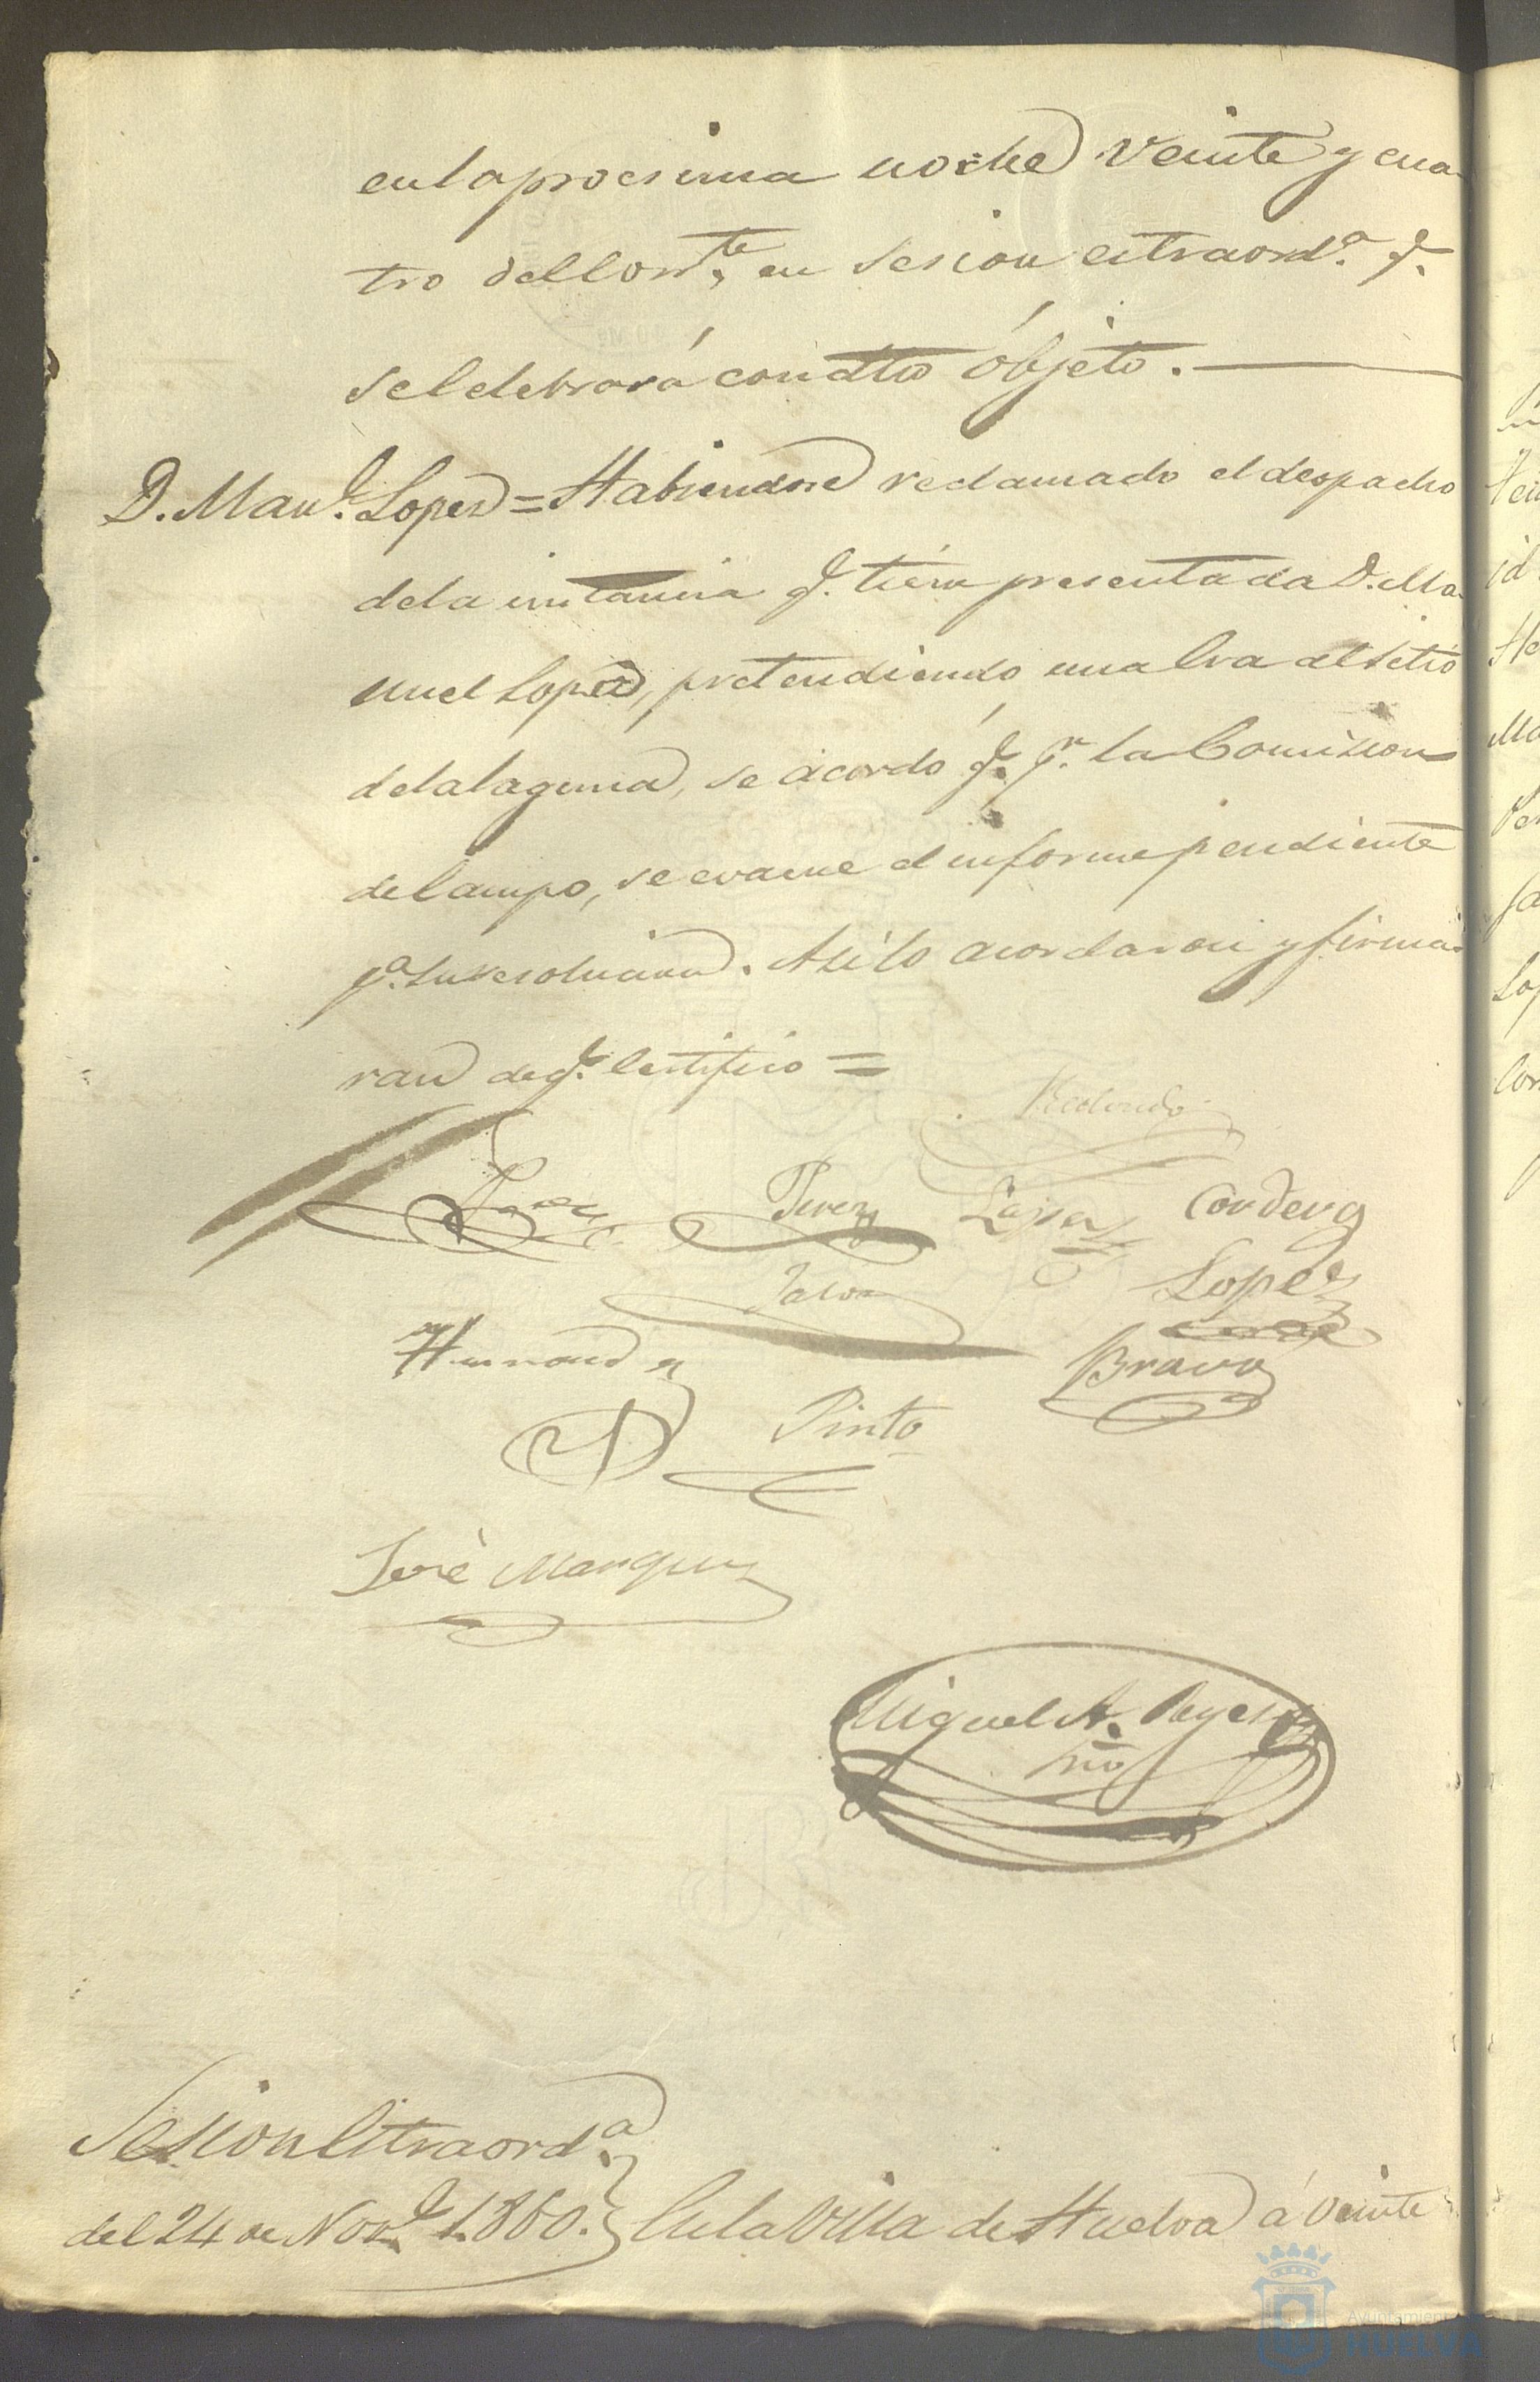 en la procsima noche veinte y cua-
tro del corrte, en sesion extraorda. q.
se celebrará con dho objeto.
D. Manl. Lopez = Habiendose reclamado el despacho
de la instancia q. tiene presentada D. Ma-
nuel Lopez, pretendiendo una Era al sitio
de la laguna, se acordó q. pr. la Comision
del campo, se evacue el informe pendiente
pa. su resolucion. Asi lo acordaron y firma-
ran de q. Certifico =
Redondo
Perez Lopez Cordero
Lopez
Hernandez Bravo
Pinto
José Marquez
Miguel A. Reyes
Srio
Sesion Extraorda.
del 24 de Nove. 1.860. En la Villa de Huelva á veinte
Ayuntamien
HUELVA